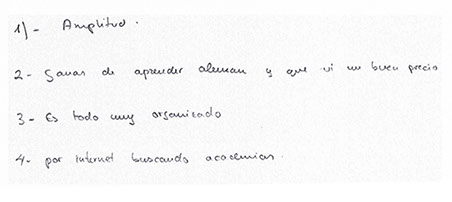 1)- Amplitud.
2- Ganas de aprender aleman y que vi un buen precio
3- Es todo muy organizado
4- por internet buscando academias.